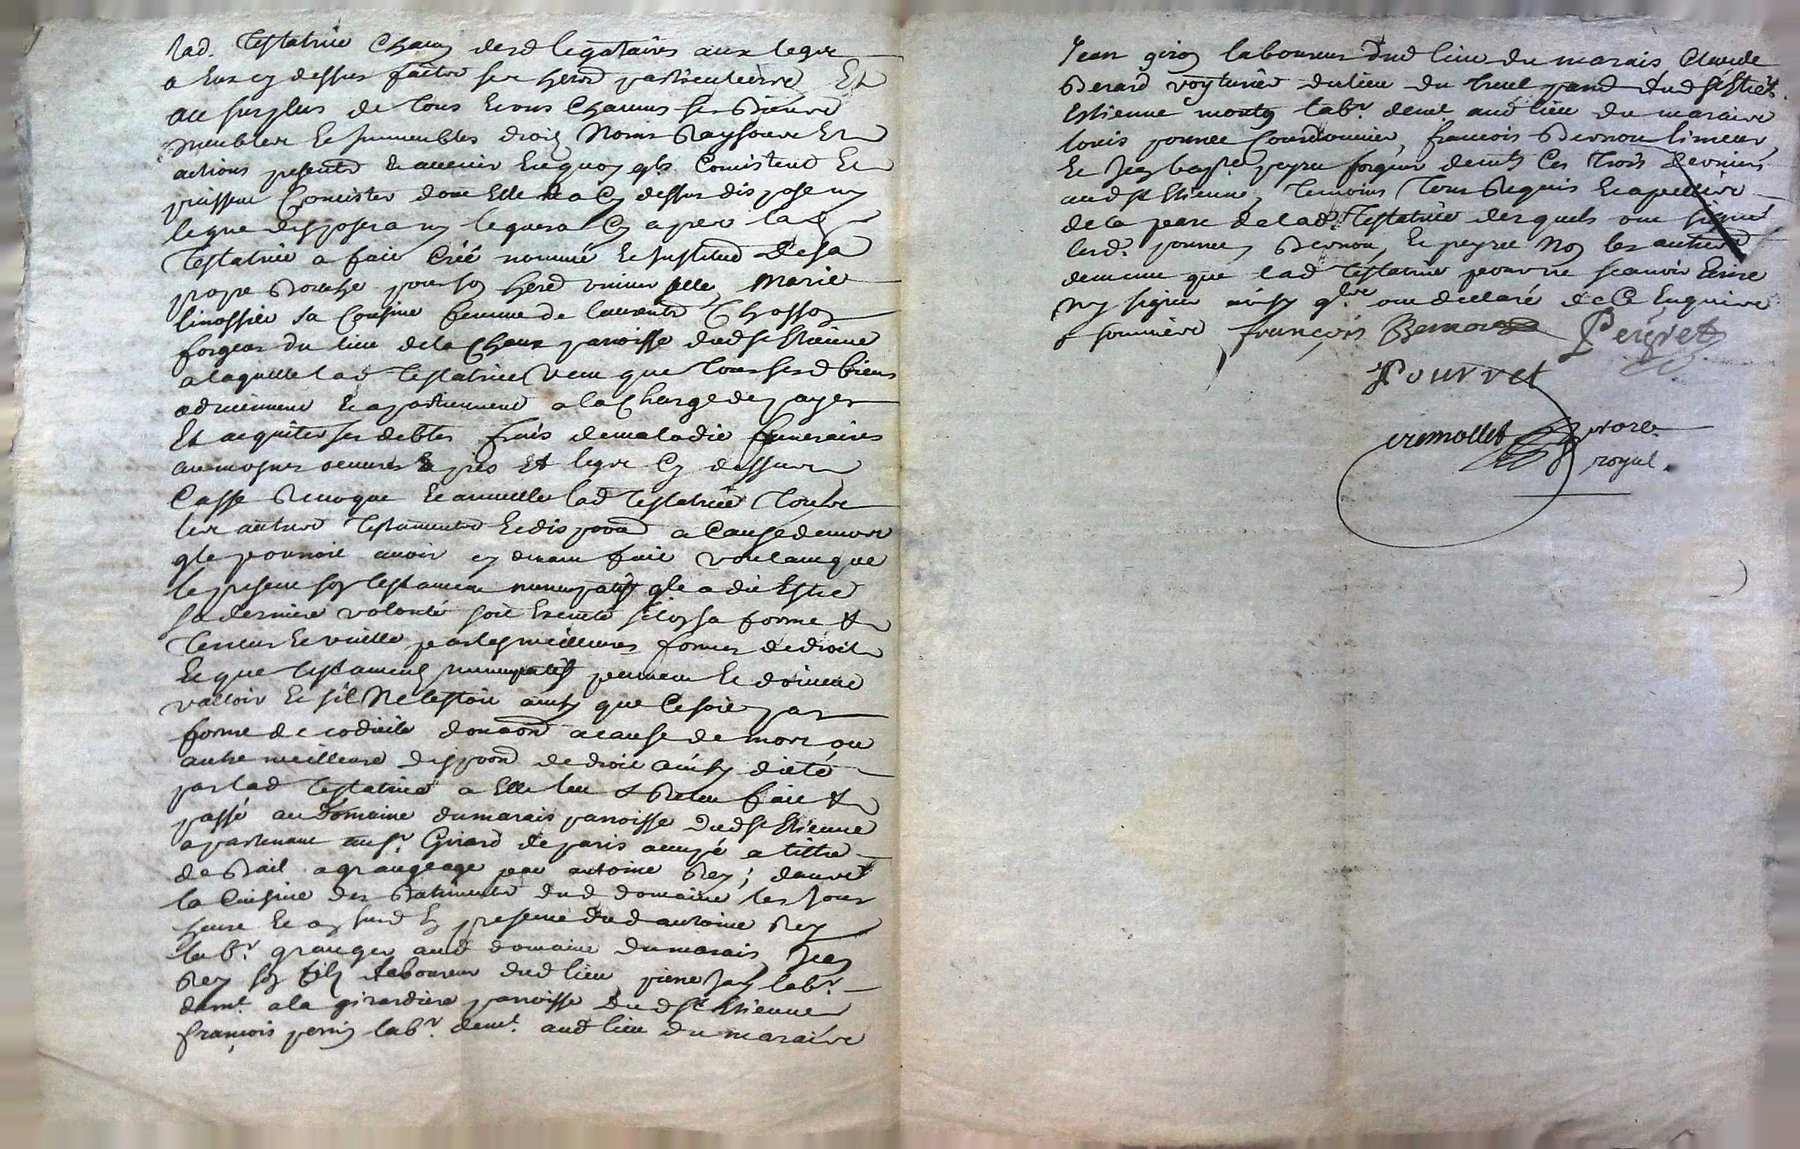 lad. Testatrice Chacun desd legataires aux legs
a Eux cy dessus faits ses herers particuliers Et
au surplus de Tous Ecuns Chacuns ses Biens
meubles Et immeubles droits Noms Raysons Et
actions presents Et avenir En quoy qls Consistent Et
puissent Consister dont Elle na Cy dessus dispose ny
legue disposera ny leguera Cy apres lad
Testatrice a fait Créé nommé Et Institué De sa
propre Bouche pour son hered universelle Marie
linossier sa Cousine femme de laurent Chosson
forgeur du lieu de la Chaux parroisse dud St Etienne
a laquelle lad Testatrice veut que Tous sesd biens
adviennent Et apartiennent a la Charge de payer
Et acquiter ses debtes frais de maladie funeraires
aumosnes oeuvres pies Et legs Cy dessus
Casse Revoque Et annulle lad Testatrice Tous
les autres Testaments Et dispoons a Cause de mort
qle pourroit avoir cy devant fait voulant que
le present son testament nuncupatif qle a dit Estre
sa derniere volonté soit Executé selon sa forme &
Teneur Et vaille par les meilleures formes de droit
Et que Testaments nuncupatifs peuvent Et doivent
valloir Et s'il Ne lestoit ainsy que Ce soit par
forme de codicile donaon a cause de mort ou
autre meilleure dispoon de droit ainsy dicté
par lad Testatrice a Elle leu & Releu fait &
passé au Domaine du marais parroisse dud St Etienne
apartenant au sr. Girard de paris occupé a tiltre
de Bail a grangeage par antoine Rey; dans
la Cuisine des Batiments dud domaine les Jour
heure Et an susd En presence dud antoine Rey
labr. granger aud domaine du marais, Jean
Rey son fils laboureur dud lieu, pierre Jay labr.
demt. a la girardiere parroisse Dud St Etienne
françois perrin labr. demt. aud lieu du marais
Jean giron laboureur dud lieu du marais Claude
Berard voyturier du lieu du treuil parr dud St Etne.
Estienne monteg labr. demt aud lieu du marais
louis pourret Courdonnier, francois Bernou limeur,
Et Jean bapte. peyret forgeur demts Ces Trois derniers
aud St Etienne, Temoins Tous Requis Et apellés
de la part de lad. Testatrice desquels ont signé
lesd. pourret, Bernou, Et peyret Non les autres
de meme que lad Testatrice pour ne scavoir Ecrire
ny signer ainsy qls. ont declaré de Ce Enquis
& sommés françois Bernou Peyret
Pourret
cremollet nore.
royal.